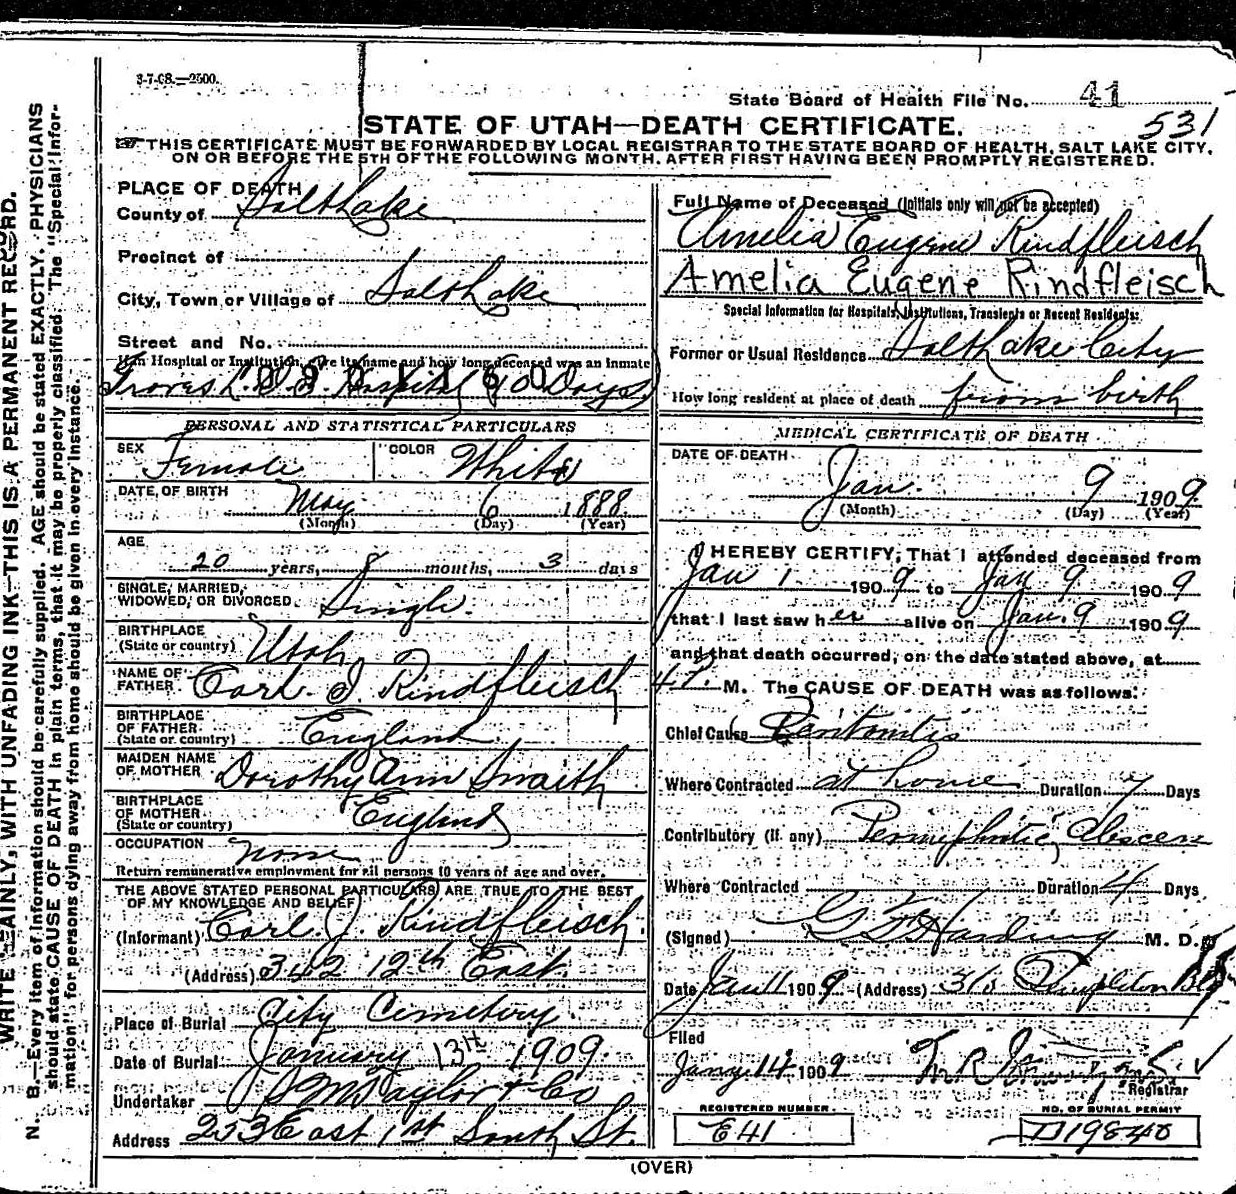 3-7-08.—2500.
State Board of Health File No. 41
531
STATE OF UTAH—DEATH CERTIFICATE.
THIS CERTIFICATE MUST BE FORWARDED BY LOCAL REGISTRAR TO THE STATE BOARD OF HEALTH, SALT LAKE CITY,
ON OR BEFORE THE 5TH OF THE FOLLOWING MONTH, AFTER FIRST HAVING BEEN PROMPTLY REGISTERED.
WRITE PLAINLY, WITH UNFADING INK—THIS IS A PERMANENT RECORD.
N. B.—Every item of information should be carefully supplied. AGE should be stated EXACTLY. PHYSICIANS
should state CAUSE OF DEATH in plain terms, that it may be properly classified. The "Special Infor-
mation" for persons dying away from home should be given in every instance.
PLACE OF DEATH
County of Salt Lake
Precinct of
City, Town or Village of Salt Lake
Street and No.
If in Hospital or Institution, give its name and how long deceased was an inmate
Groves L.D.S. Hospital (10 Days)
PERSONAL AND STATISTICAL PARTICULARS
SEX Female COLOR White
DATE OF BIRTH May 6 1888
(Month) (Day) (Year)
AGE
20 years, 8 months, 3 days
SINGLE, MARRIED,
WIDOWED, OR DIVORCED Single.
BIRTHPLACE
(State or country) Utah
NAME OF
FATHER Carl J Rindfleisch
BIRTHPLACE
OF FATHER
(State or country) England
MAIDEN NAME
OF MOTHER Dorothy Ann Smaith
BIRTHPLACE
OF MOTHER
(State or country) England
OCCUPATION none
Return remunerative employment for all persons 10 years of age and over.
THE ABOVE STATED PERSONAL PARTICULARS ARE TRUE TO THE BEST
OF MY KNOWLEDGE AND BELIEF
(Informant) Carl. J. Rindfleisch.
(Address) 342 12th East.
Place of Burial City Cemetery.
Date of Burial January 13th 1909.
Undertaker S M Taylor & Co
Address 253 East 1st South St.
Full Name of Deceased (Initials only will not be accepted)
Amelia Eugene Rindfleisch
Amelia Eugene Rindfleisch
Special Information for Hospitals, Institutions, Transients or Recent Residents:
Former or Usual Residence Salt Lake City
How long resident at place of death from birth
MEDICAL CERTIFICATE OF DEATH
DATE OF DEATH
Jan. 9 1909
(Month) (Day) (Year)
I HEREBY CERTIFY, That I attended deceased from
Jan 1 1909 to Jan 9 1909
that I last saw her alive on Jan. 9 1909
and that death occurred, on the date stated above, at
4 P. M. The CAUSE OF DEATH was as follows:
Chief Cause Peritonitis
Where Contracted at home Duration 7 Days
Contributory (if any)
Where Contracted Duration 4 Days
(Signed) Harding M. D.
Date Jan 11 1909 (Address) Templeton Bld
Filed
Jany 14 1909
Registrar
REGISTERED NUMBER
E41
NO. OF BURIAL PERMIT
D19840
(OVER)